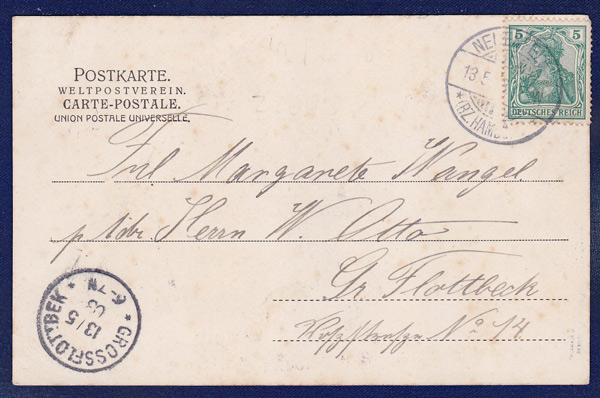 POSTKARTE.
WELTPOSTVEREIN.
CARTE-POSTALE.
UNION POSTALE UNIVERSELLE.
5 5
DEUTSCHES REICH
13 5
*(BZ. HAMB
Frl Margarete Wangel
p. Adr. Herrn W. Otto
Gr. Flottbeck
No 14
GROSSFLOTTBEK
13/5
03
6-7N